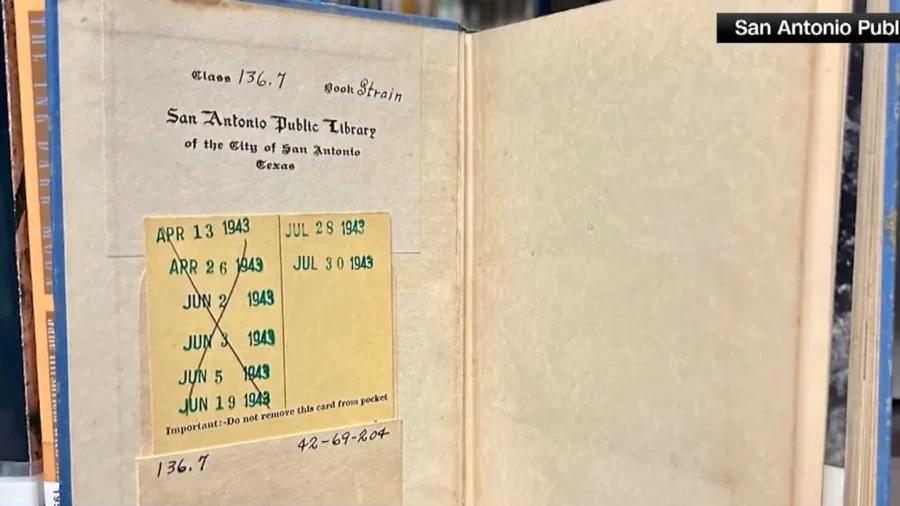 San Antonio Publ
Class 136.7 Book Strain
San Antonio Public Library
of the City of San Antonio
Texas
APR 13 1943
APR 26 1943
JUN 2 1943
JUN 3 1943
JUN 5 1943
JUN 19 1943
JUL 28 1943
JUL 30 1943
Important:-Do not remove this card from pocket
136.7 42-69-204